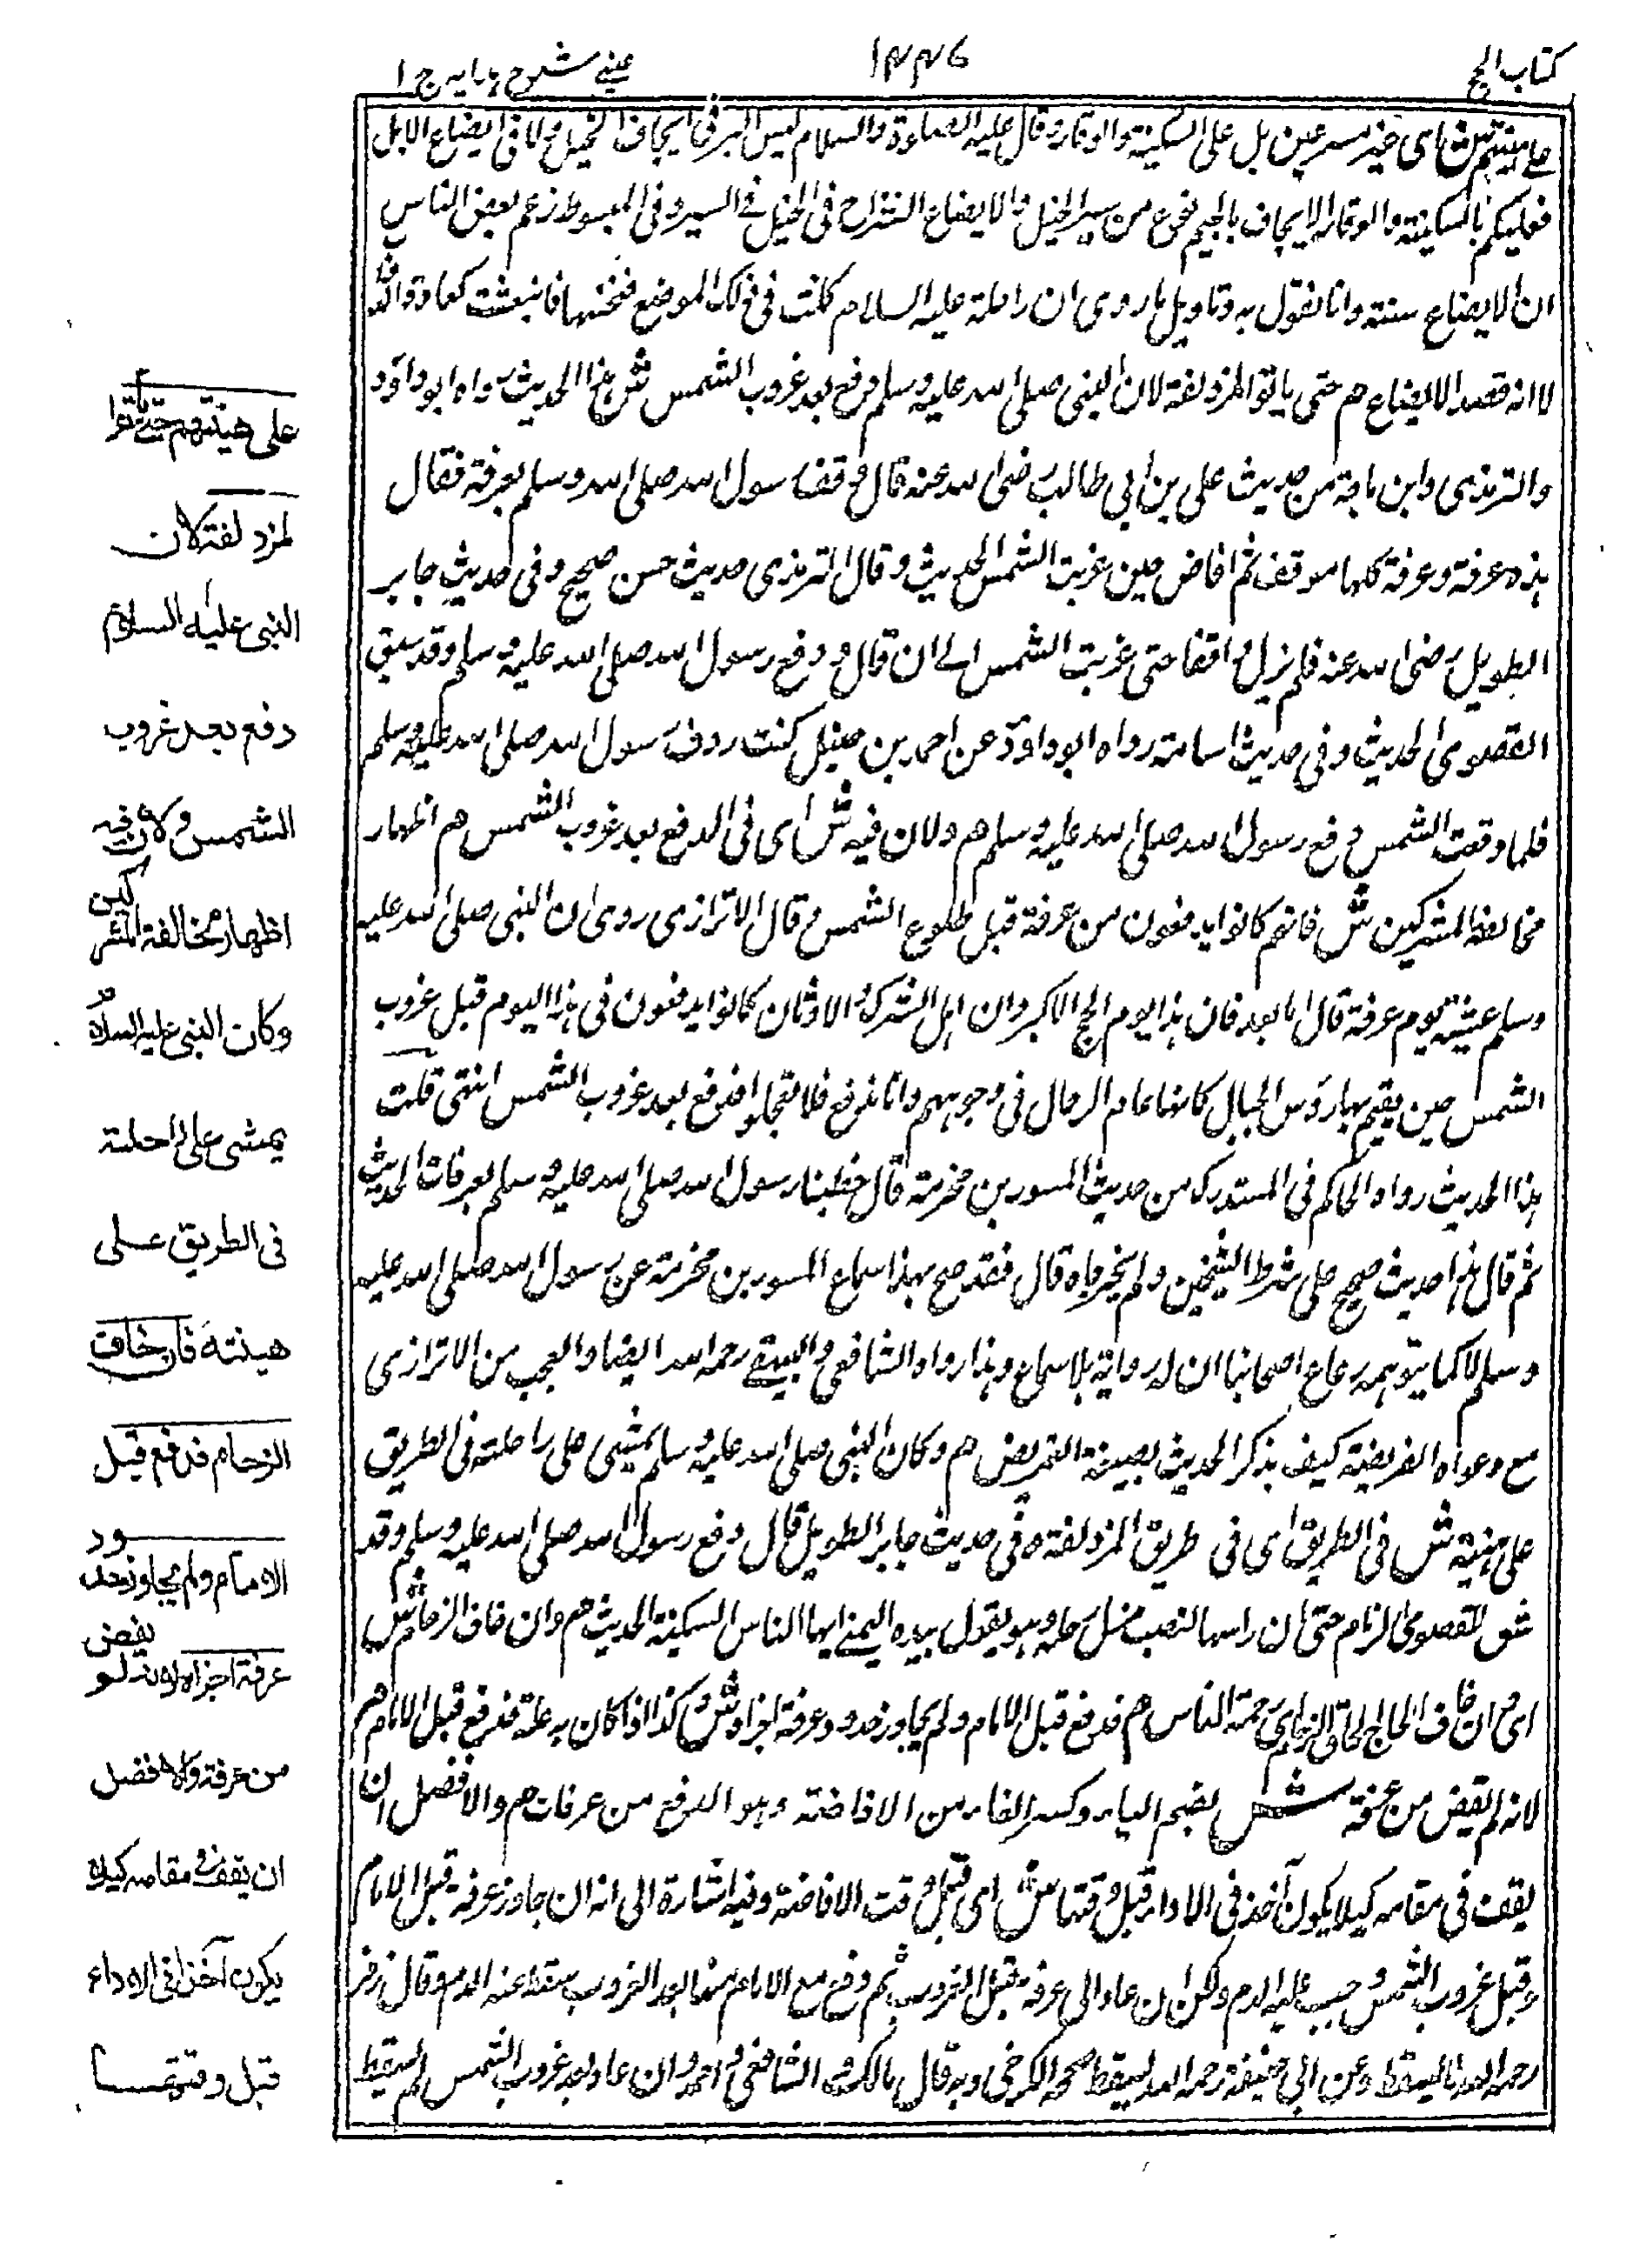 كتاب الحج
١٤٤٦
عيني شرح هدايه ج ١
على هينتهم ش اى غير مسرعين بل على السكينة والوقار وقال عليه الصلوة والسلام ليس البر فى ايجاف الخيل ولا فى ايضاع الابل
فعليكم بالسكينة والوقار الايجاف بالجيم نوع من سير الخيل والايضاع فى الخيل فى السير وفى المبسوط زعم بعض الناس
ان الايضاع سنة وانا نقول به وتاويل ما روى ان راحلة عليه السلام كانت فى ذلك الموضع فنخسها فانبعثت كعادة الدف
لا انه قصد الايضاع هم حتى ياتوا المزدلفة لان النبى صلى الله عليه وسلم دفع بعد غروب الشمس ش هذا الحديث رواه ابو داود
والترمذى وابن ماجة من حديث على بن ابى طالب رضى الله عنه قال وقف رسول الله صلى الله وسلم بعرفة فقال
هذه عرفة وعرفة كلها موقف ثم افاض حين غربت الشمس الحديث وقال الترمذى حديث حسن صحيح وفى حديث جابر
الطويل رضى الله عنه فلم يزل واقفا حتى غربت الشمس الى ان قال ودفع رسول الله صلى الله عليه وسلم وقد سبق
القصوى الحديث وفى حديث اسامة رواه ابو داود عن احمد بن حنبل كنت ردف رسول الله صلى الله عليه وسلم
فلما وقعت الشمس دفع رسول الله صلى الله عليه وسلم هم ولان فيه ش اى فى الدفع بعد غروب الشمس هم اظهار
مخالفة المشركين ش فانهم كانوا يدفعون من عرفة قبل طلوع الشمس وقال الاترازى روى ان النبى صلى الله عليه
وسلم عشية يوم عرفة قال اما بعد فان هذا يوم الحج الاكبر وان اهل الشرك والاوثان كانوا يدفعون فى هذا اليوم قبل غروب
الشمس حين يقيم بها رؤس الجبال كانها عمائم الرجال فى وجوههم وانا ندفع فلا تعجلوا فدفع بعد غروب الشمس انتهى قلت
هذا الحديث رواه الحاكم فى المستدرك من حديث المسور بن مخرمة قال خطبنا رسول الله صلى الله عليه وسلم بعرفات الحديث
ثم قال هذا حديث صحيح على شرط الشيخين ولم يخرجاه قال فقد صح بهذا سماع المسور بن مخرمة عن رسول الله صلى الله عليه
وسلم لا كما يتوهمه رعاع اصحابنا ان له رواية بلا سماع وهذا رواه الشافعى والبيهقى رحمه الله ايضا والعجب من الاترازى
مع دعواه الفريضة كيف يذكر الحديث بصيغة التمريض هم وكان النبى صلى الله عليه وسلم يمشى على راحلته فى الطريق
على هينته ش فى الطريق اى فى طريق المزدلفة وفى حديث جابر الطويل قال دفع رسول الله صلى الله عليه وسلم وقد
شنق للقصوى الزمام حتى ان راسها لتصيب رحله وهو يقول بيده اليمنى ايها الناس السكينة الحديث هم وان خاف الزحام ش
اى وان خاف الحاج زحمة الناس هم فدفع قبل الامام ولم يجاوز حدود عرفة اجزاه ش وكذا اذا كان به علة فدفع قبل الامام هم
لانه لم يفض من عرفة ش بضم الياء وكسر الفاء من الافاضة وهو الدفع من عرفات هم والافضل ان
يقف فى مقامه كيلا يكون آخذ فى الاداء قبل وقتها ش اى قبل وقت الافاضة وفيه اشارة الى انه ان جاوز عرفة قبل الامام
وقبل غروب الشمس وجب عليه الدم ولكن ان عاد الى عرفة قبل الغروب ثم دفع مع الامام منها بعد الغروب سقط عنه الدم وقال زفر
رحمه الله لا يسقط وعن ابى حنيفة رحمه الله يسقط صححه الكرخى وبه قال مالك والشافعى واحمد وان عاد بعد غروب الشمس لم يسقط
على هينتهم حتى ياتوا
لمزدلفة لان
النبى عليه السلام
دفع بعد غروب
الشمس ولان فيه
اظهار مخالفة المشركين
وكان النبى عليه السلام
يمشى على راحلته
فى الطريق على
هينته فان خاف
الزحام فدفع قبل
الامام ولم يجاوز حدود
عرفة اجزاه لانه لم يفض
من عرفة والافضل
ان يقف فى مقامه كيلا
يكون آخذا فى الاداء
قبل وقتها